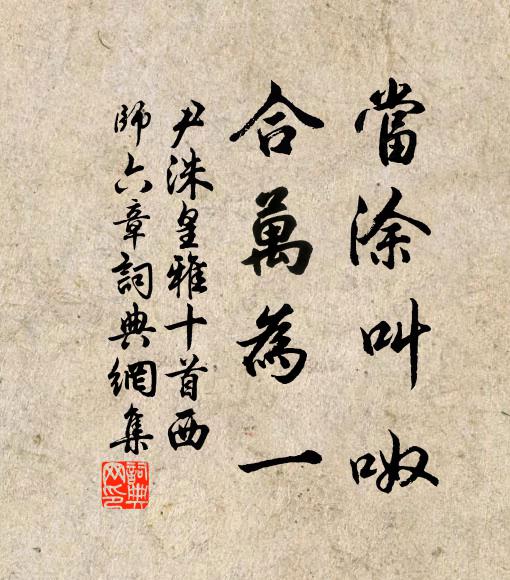 當涂叫呶
合萬為一
尹洙皇雅十首西
師六章詞典網集
詞典網印